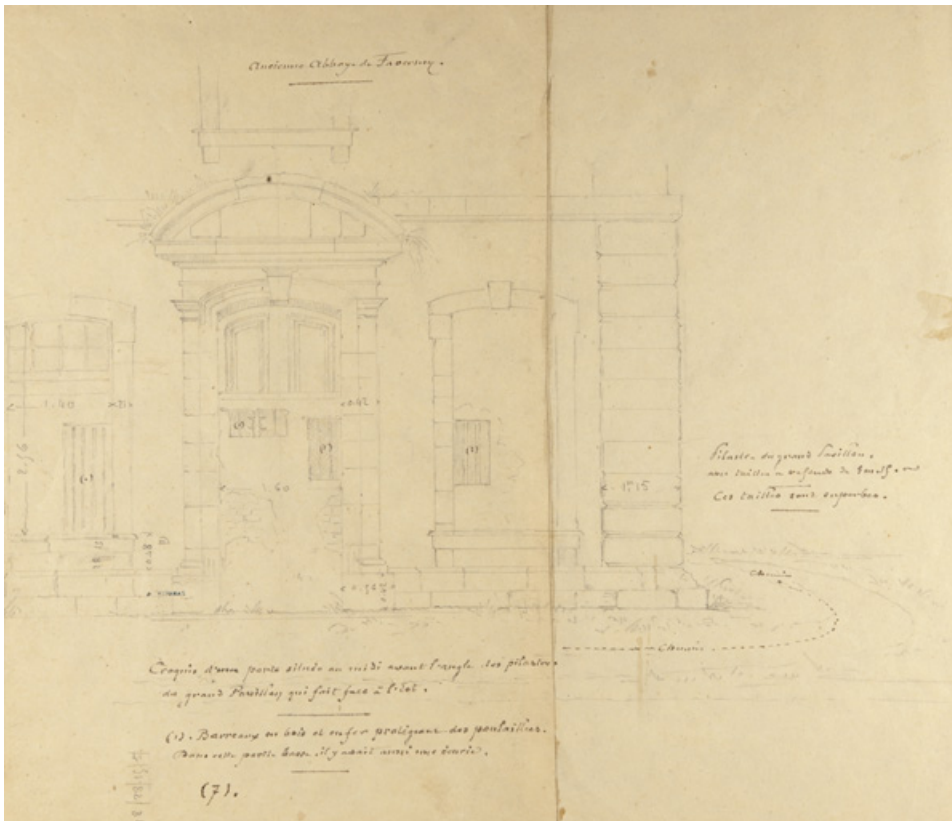 Ancienne Abbaye de Faverney.
1.40
(1)
(1)
(1)
(1)
0.42
2.56
1.60
1m15
Pilastre du grand Pavillon.
avec tailles à refends de
Ces tailles sont superbes.
0.48
Chemin
Chemin
Croquis d'une porte située au midi avant l'angle des pilastres
du grand Pavillon qui fait face à l'Est.
(1). Barreaux en bois et en fer protégeant des
Dans cette partie basse, il y avait aussi une écurie.
(7).